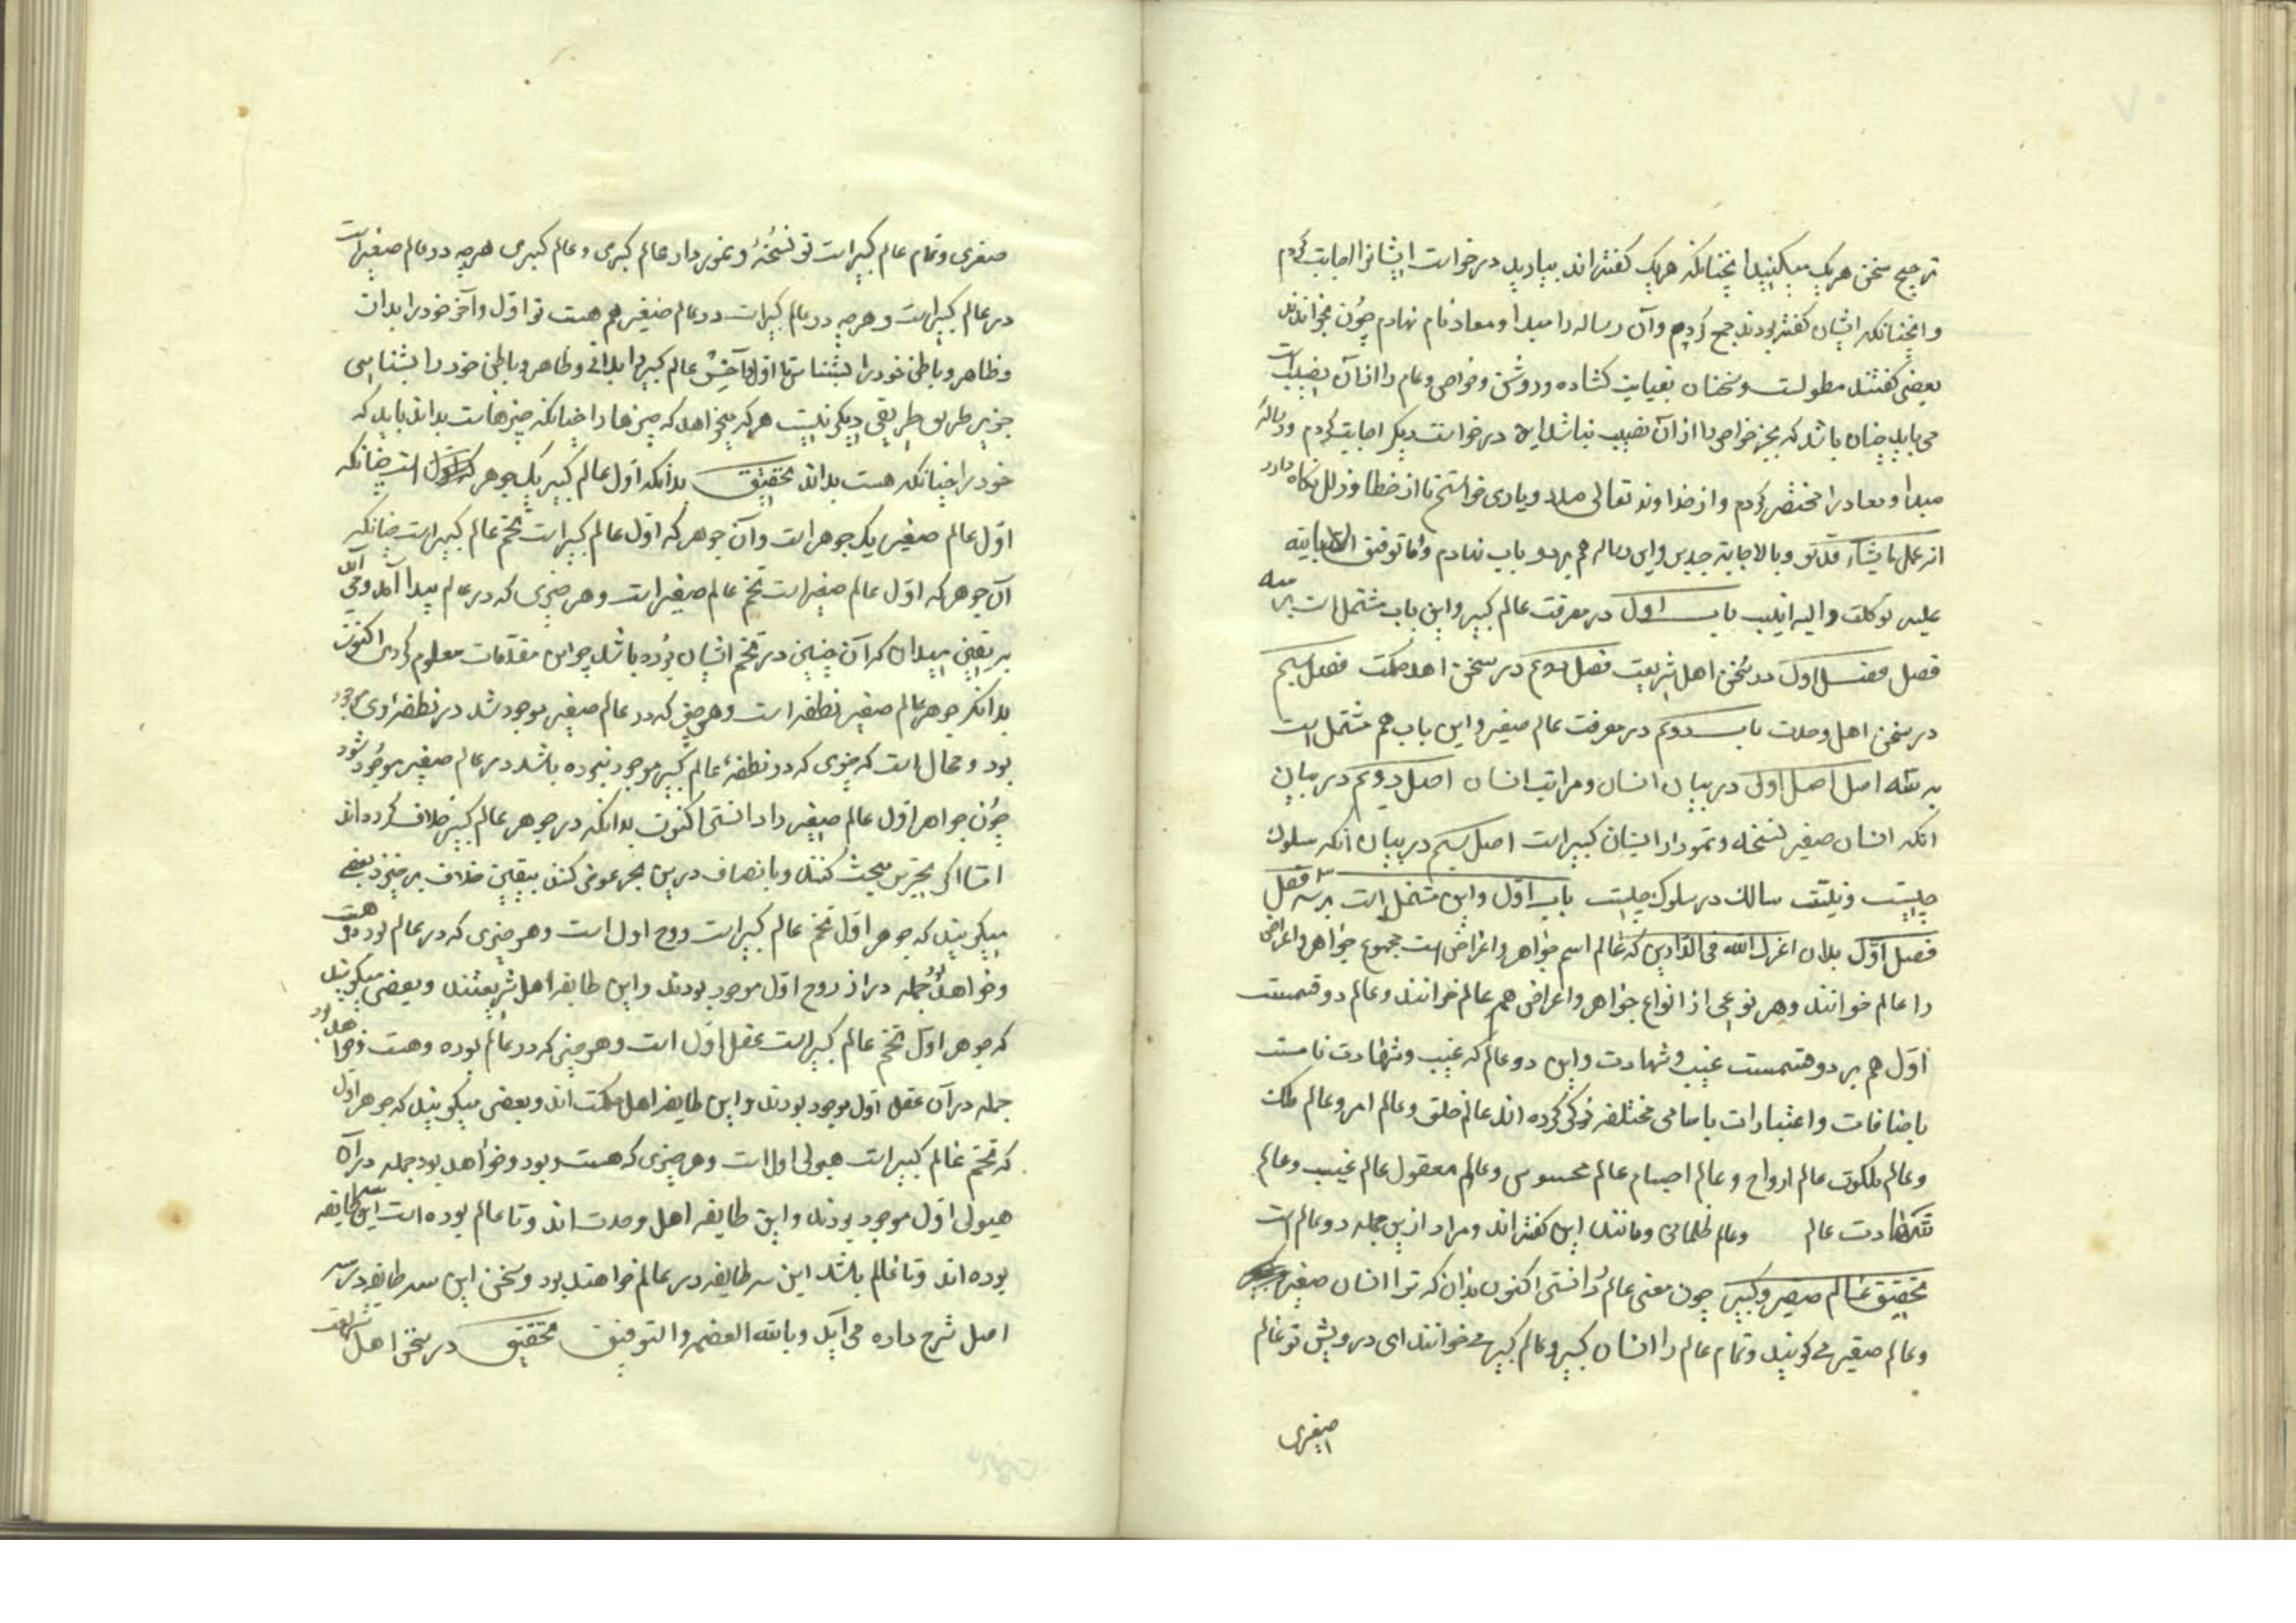 ترجیح سخن هریک میکنید انچنانکه هریک گفته‌اند بیارید درخواست ایشانرا اجابت کردم
و انچنانکه ایشان گفته بودند جمع کردم وآن رساله را مبدا و معاد نام نهادم چون بخواندند
بعضی گفتند مطولست وسخنان بغیایت کشاده و روشن وخواص وعام را ازآن نصیب است
می باید چنان باشد که بجز خواص را ازآن نصیب نباشد این درخواست دیکر اجابت کردم ورساله
مبدا ومعاد را مختصر کردم واز خداوند تعالی مدد ویاری خواستم تا از خطا وزلل نکاه دارد
انه علی ما یشاء قدیر وبالاجابة جدیر واین رساله هم بر دو باب نهادم وما توفیقی الا بالله
علیه توکلت والیه انیب باب اول در معرفت عالم کبیر واین باب مشتمل است بر سه
فصل فصل اول در سخن اهل شریعت فصل دوم در سخن اهل حکمت فصل سیم
در سخن اهل وحدت باب دوم در معرفت عالم صغیر واین باب هم مشتمل است
بر سه اصل اصل اول در بیان انسان ومراتب انسان اصل دویم در بیان
انکه انسان صغیر نسخه ونمودار انسان کبیر است اصل سیم در بیان انکه سلوک
چیست ونیت سالک در سلوک چیست باب اول واین مشتمل است بر سه فصل
فصل اول بدان اعزک الله فی الدارین که عالم اسم جواهر واعراض است مجموع جواهر واعراض
را عالم خوانند وهر نوعی از انواع جواهر واعراض هم عالم خوانند وعالم دو قسمست
اول هم بر دو قسمست غیب وشهادت واین دو عالم که غیب وشهادت نامست
باضافات واعتبارات باسامی مختلفه ذکر کرده اند عالم خلق وعالم امر وعالم ملک
وعالم ملکوت عالم ارواح وعالم اجسام عالم محسوس وعالم معقول عالم غیب وعالم
شهادت عالم وعالم ظلمانی ومانند این گفته‌اند ومراد ازین جمله دو عالم است
تحقیق عالم صغیر وکبیر چون معنی عالم را دانستی اکنون بدان که ترا انسان صغیر
وعالم صغیر می کویند وتمام عالم را انسان کبیر وعالم کبیر می خوانند ای درویش تو عالم
صغری
صغری وتمام عالم کبیر است تو نسخه ونمودار عالم کبری وعالم کبری هرچه در عالم صغیر است
در عالم کبیر است وهرچه در عالم کبیر است در عالم صغیر هم هست تو اول وآخر خود را بدان
وظاهر وباطن خود را بشناس تا اول وآخر عالم کبیر را بدانی وظاهر وباطن خود را بشناسی
جز این طریق طریقی دیکر نیست هرکه میخواهد که چیزها را چنانکه چیزهاست بداند باید که
خود را چنانکه هست بداند تحقیق بدانکه اول عالم کبیر یک جوهر است چنانکه
اول عالم صغیر یک جوهر است وآن جوهر که اول عالم کبیر است تخم عالم کبیر است چنانکه
آن جوهر که اول عالم صغیر است تخم عالم صغیر است وهر چیزی که در عالم پیدا آمد ومی آید
بر یقین میدان که آن چنین در تخم ایشان بوده باشد چو این مقدمات معلوم کردی اکنون
بدانکه جوهر عالم صغیر نطفه است وهر چیز که در عالم صغیر موجود شد در نطفه وی موجود
بود ومحال است که چیزی که در نطفه عالم کبیر موجود نبوده باشد در عالم صغیر موجود شود
چون جواهر اول عالم صغیر را دانستی اکنون بدانکه در جوهر عالم کبیر خلاف کرده‌اند
امتا اکر بحث کنند وبانصاف درین بحر غوص کنند بیقین خلاف بر خیزد بعضی
میکویند که جوهر اول تخم عالم کبیر است روح اول است وهر چیزی که در عالم بود وهست
وخواهد بود جمله در آن روح اول موجود بودند واین طایفه اهل شریعتند وبعضی میکویند
که جوهر اول تخم عالم کبیر است عقل اول است وهر چیز که در عالم بوده وهست وخواهد بود
جمله در آن عقل اول موجود بودند واین طایفه اهل حکمت اند وبعضی میکویند که جوهر اول
که تخم عالم کبیر است هیولی اول است وهر چیزی که هست وبود وخواهد بود جمله در آن
هیولی اول موجود بودند واین طایفه اهل وحدت اند وتا عالم بوده است این سه طایفه
بوده اند وتا عالم باشد این سه طایفه در عالم خواهند بود وسخن این سه طایفه در سه
اصل شرح داده می آید وبالله العصمه والتوفیق تحقیق در سخن اهل شریعت